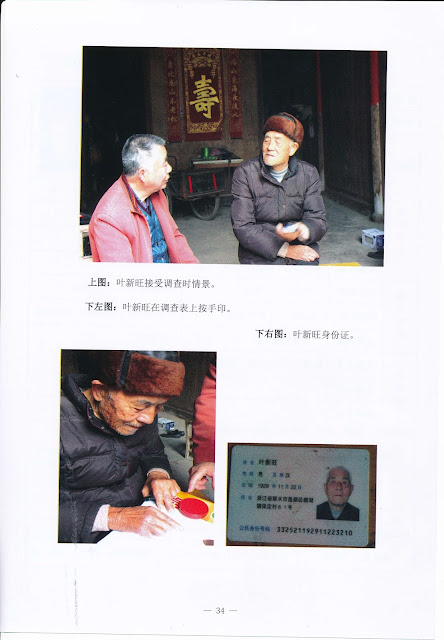 壽
上图：叶新旺接受调查时情景。
下左图：叶新旺在调查表上按手印。
下右图：叶新旺身份证。
姓名 叶新旺
性别 男 民族 汉
出生 1929 年 11 月 22 日
住址 浙江省丽水市莲都区碧湖
镇保定村61号
公民身份号码 332521192911223210
— 34 —